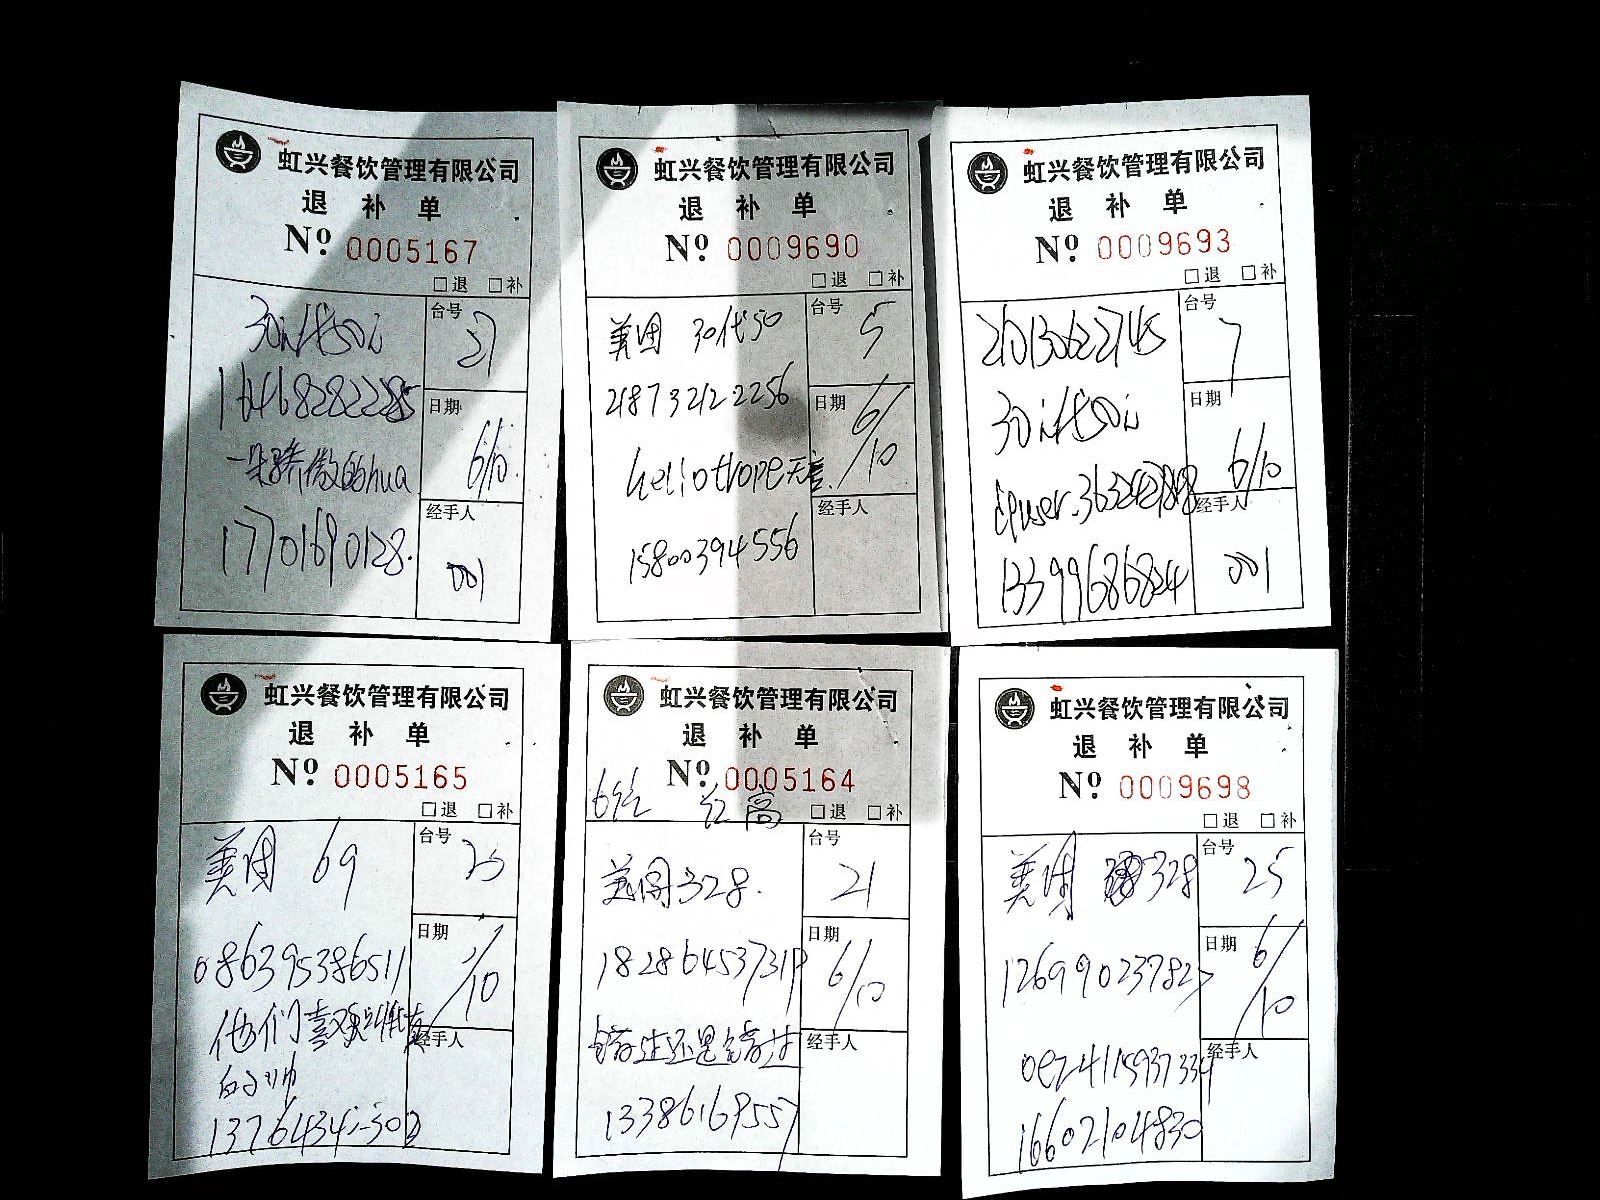 虹兴餐饮管理有限公司
退 补 单
Nº 0005167
□退 □补
30元代50元
台号
21
16468282285
日期
6/10.
一朵骄傲的hua
经手人
17701690128.
001
虹兴餐饮管理有限公司
退 补 单
Nº 0009690
□退 □补
美团 30代50
台号
5
218732122256
日期
6/10
heliotrope无言.
经手人
15800394556
虹兴餐饮管理有限公司
退 补 单
Nº 0009693
□退 □补
210130622745
台号
7
30元代50元
日期
6/10
经手人
13399686824
001
虹兴餐饮管理有限公司
退 补 单
Nº 0005165
□退 □补
美团 69
台号
日期
/10
086395386511
他们喜欢
经手人
虹兴餐饮管理有限公司
退 补 单
Nº 0005164
□退 □补
美团328.
台号
21
日期
6/10
错过还是错过
经手人
虹兴餐饮管理有限公司
退 补 单
Nº 0009698
□退 □补
美团 328
台号
25
126990237827
日期
6/10
经手人
16602104830